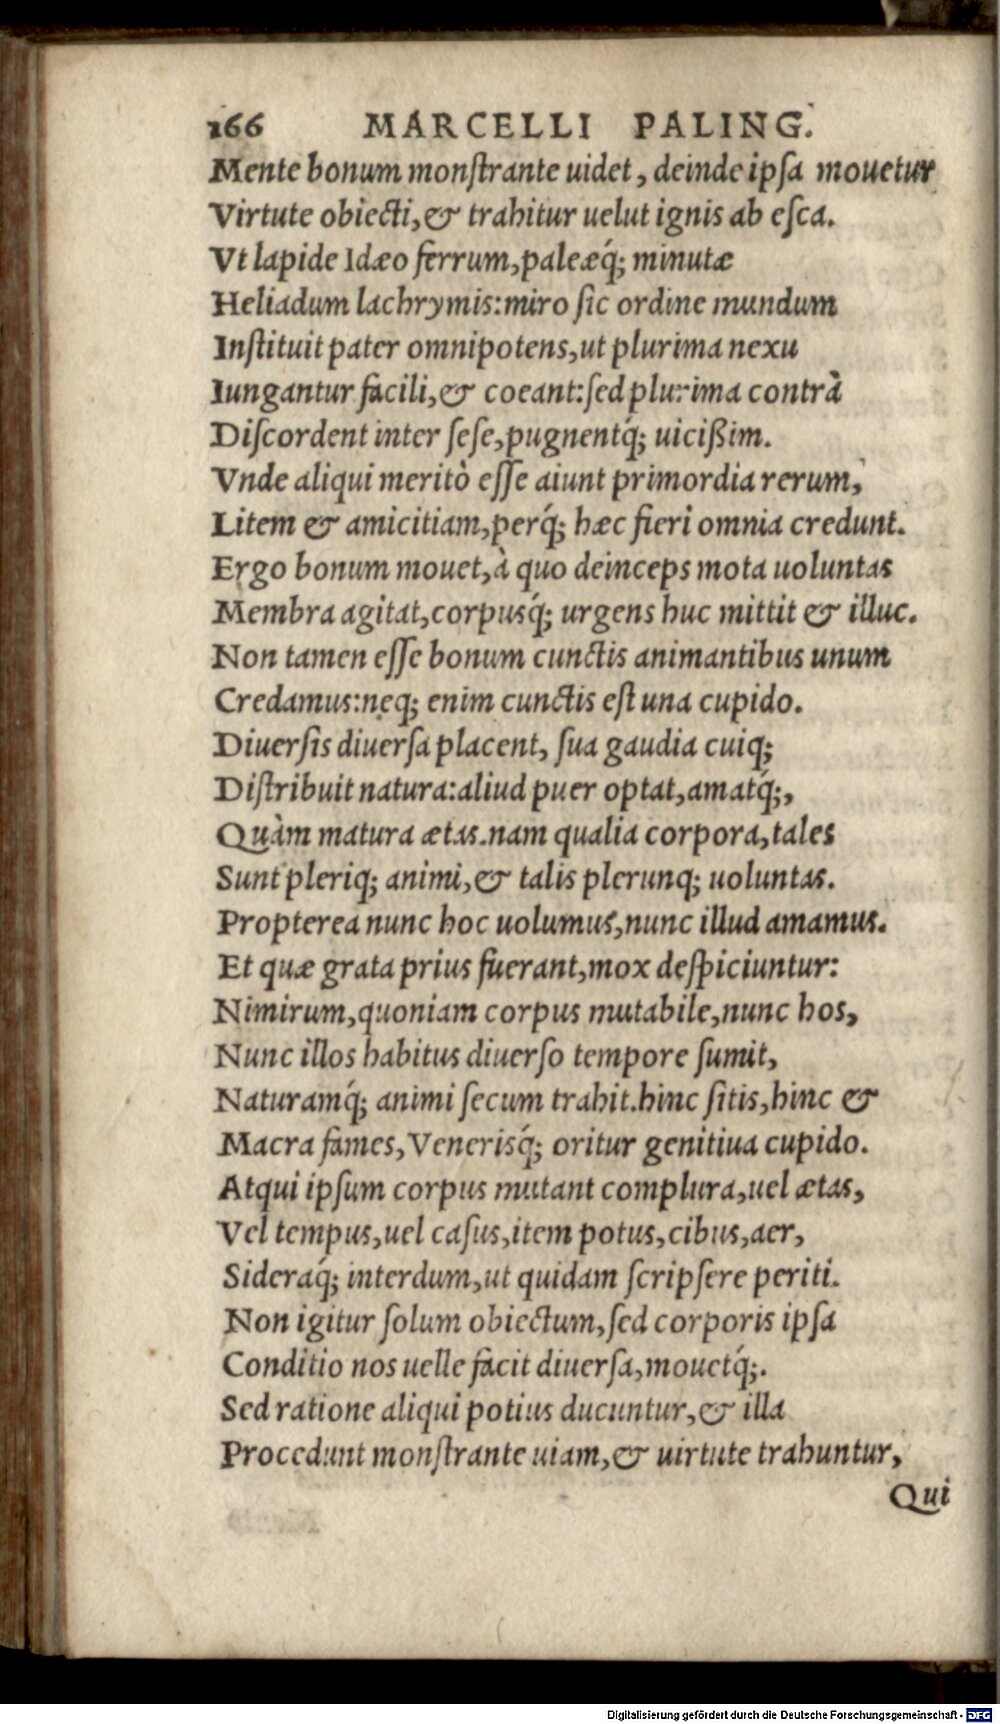 166 MARCELLI PALING.
Mente bonum monſtrante uidet, deinde ipſa mouetur
Virtute obiecti,& trahitur uelut ignis ab eſca.
Vt lapide Idæo ferrum,paleæq́; minutæ
Heliadum lachrymis:miro ſic ordine mundum
Inſtituit pater omnipotens,ut plurima nexu
Iungantur facili,& coeant:ſed plurima contrà
Diſcordent inter ſeſe,pugnentq́; uicißim.
Vnde aliqui meritò eſſe aiunt primordia rerum,
Litem & amicitiam,perq́; hæc fieri omnia credunt.
Ergo bonum mouet,à quo deinceps mota uoluntas
Membra agitat,corpusq́; urgens huc mittit & illuc.
Non tamen eſſe bonum cunctis animantibus unum
Credamus:neq; enim cunctis eſt una cupido.
Diuerſis diuerſa placent, ſua gaudia cuiq;
Diſtribuit natura:aliud puer optat,amatq́;,
Quàm matura ætas.nam qualia corpora,tales
Sunt pleriq; animi,& talis plerunq; uoluntas.
Propterea nunc hoc uolumus,nunc illud amamus.
Et quæ grata prius fuerant,mox deſpiciuntur:
Nimirum,quoniam corpus mutabile,nunc hos,
Nunc illos habitus diuerſo tempore ſumit,
Naturamq́; animi ſecum trahit.hinc ſitis,hinc &
Macra fames,Venerisq́; oritur genitiua cupido.
Atqui ipſum corpus mutant complura,uel ætas,
Vel tempus,uel caſus,item potus,cibus,aer,
Sideraq́; interdum,ut quidam ſcripſere periti.
Non igitur ſolum obiectum,ſed corporis ipſa
Conditio nos uelle facit diuerſa,mouetq́;.
Sed ratione aliqui potius ducuntur,& illa
Procedunt monſtrante uiam,& uirtute trahuntur,
Qui
Digitalisierung gefördert durch die Deutsche Forschungsgemeinschaft - DFG